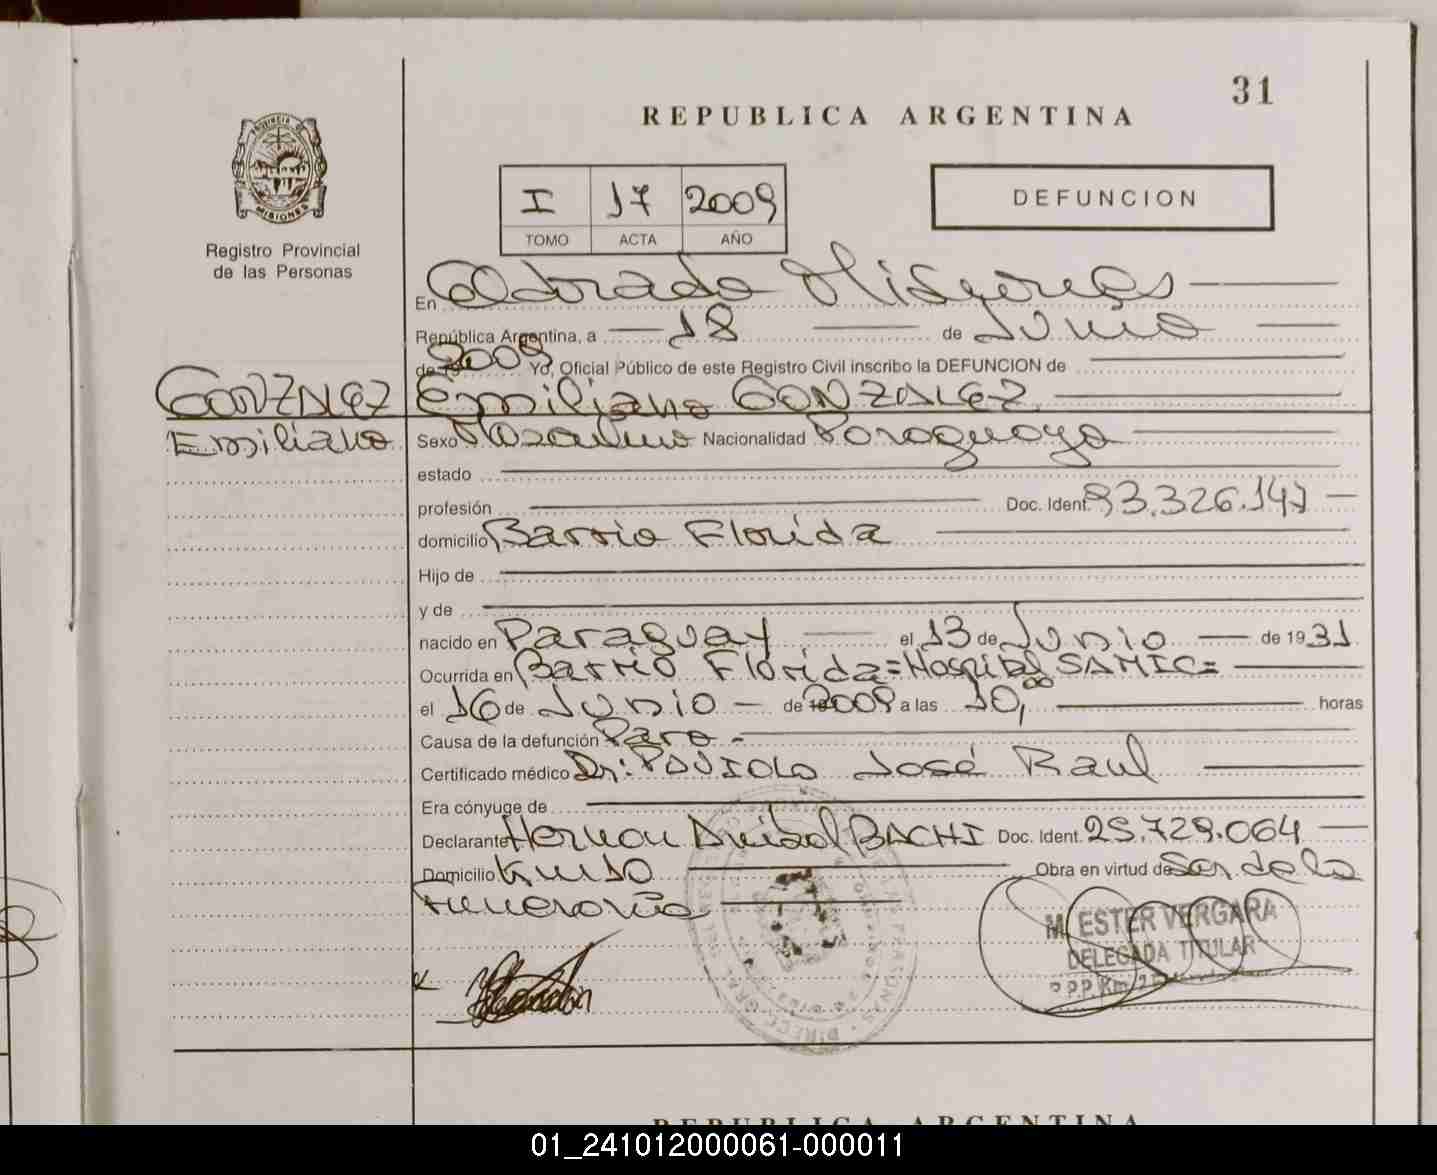 31
REPUBLICA ARGENTINA
PROVINCIA DE
MISIONES
Registro Provincial
de las Personas
I 17 2009
TOMO ACTA AÑO
DEFUNCION
En Eldorado Misiones
República Argentina, a 18 de Junio
de 19 2009 Yo, Oficial Público de este Registro Civil inscribo la DEFUNCION de
GONZALEZ Emiliano GONZALEZ
Emiliano Sexo Masculino Nacionalidad Paraguaya
estado
profesión Doc. Ident. 93.326.147
domicilio Barrio Florida
Hijo de
y de
nacido en Paraguay el 13 de Junio de 1931
Ocurrida en Barrio Florida=Hospital SAMIC=
el 16 de Junio de 2009 a las 10,00 horas
Causa de la defunción Paro
Certificado médico Dr: José Raul
Era cónyuge de
Declarante Hernan Anibal BACHI Doc. Ident. 25.729.064
Domicilio Km 10 Obra en virtud de Ser de la
Funeraria
M. ESTER VERGARA
DELEGADA TITULAR
REPUBLICA ARGENTINA
01_241012000061-000011